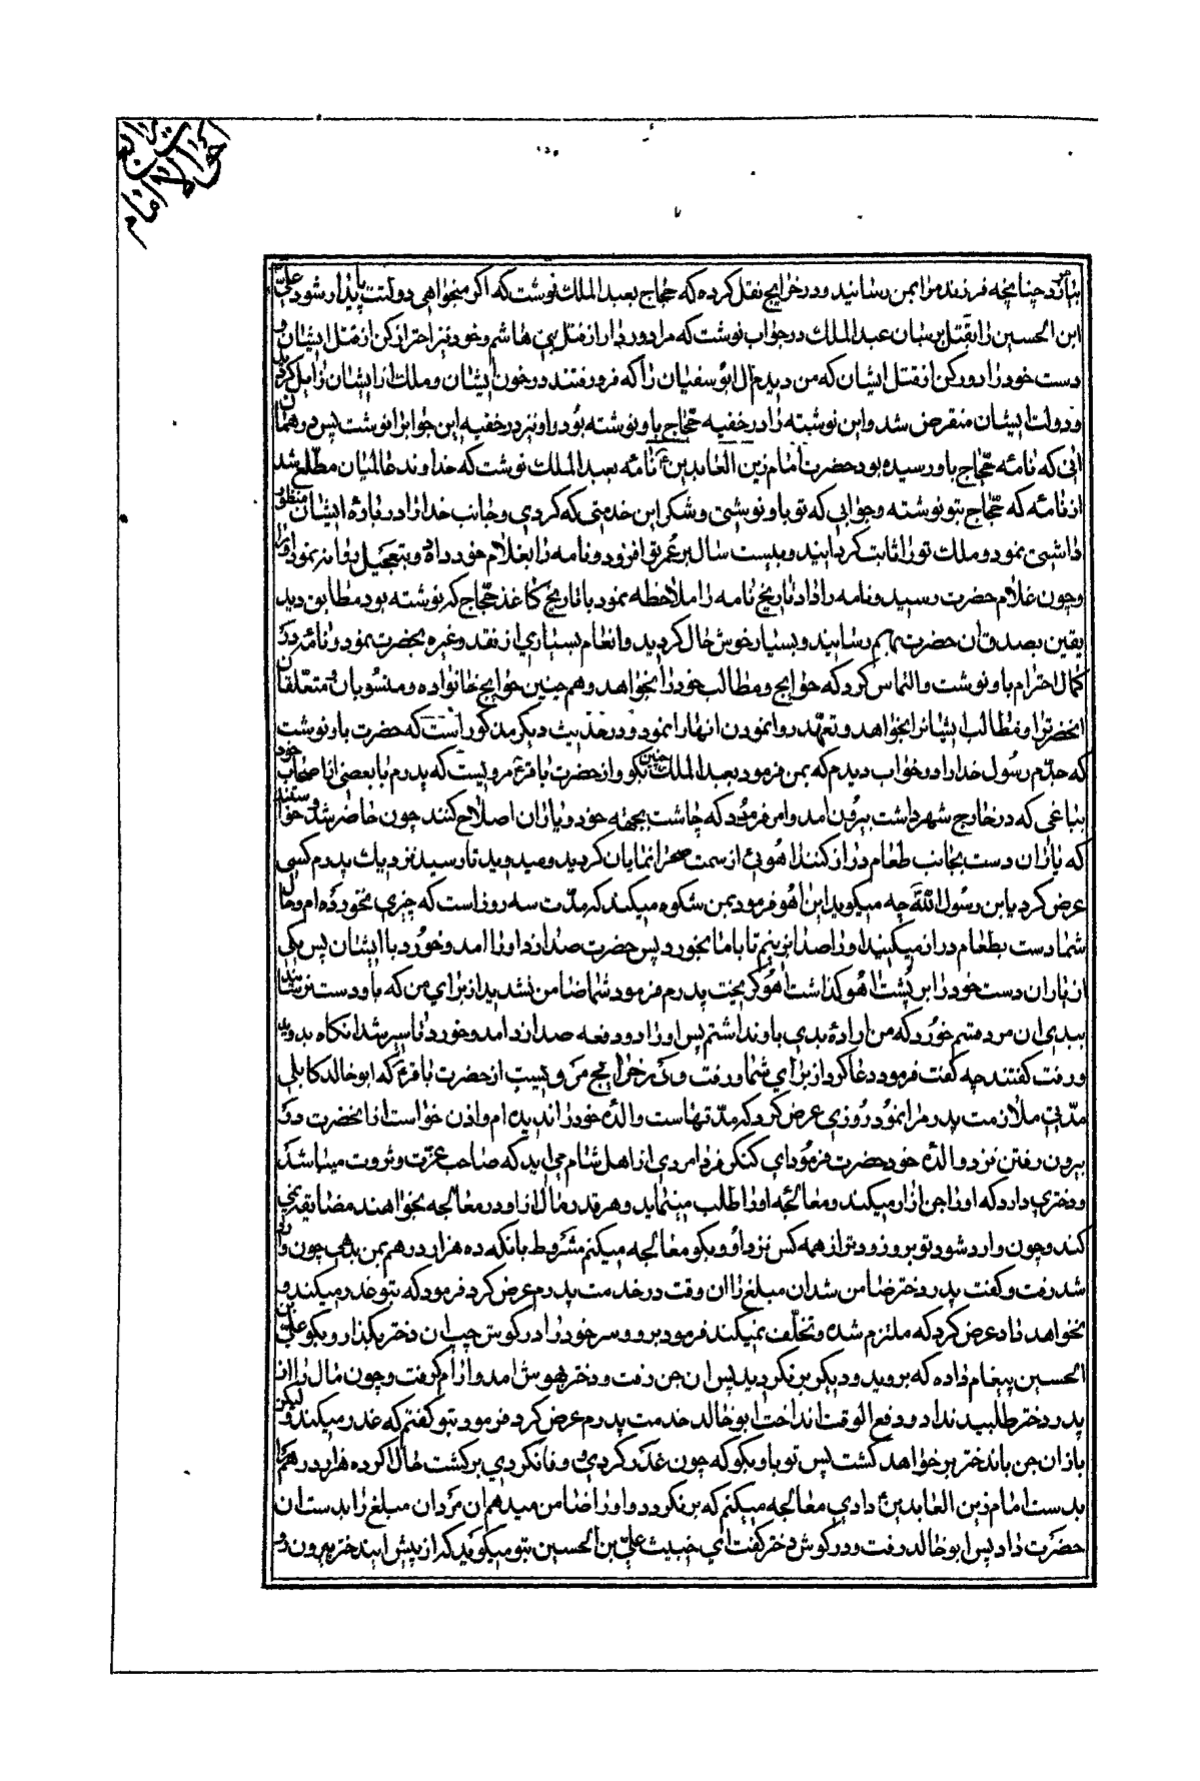 احوالات امام
بنیازد چنانچه فرزند مرا بمن رسانید و در خرایج نقل کرده که حجاج بعبدالملک نوشت که اگر میخواهی دولتت پایدار شود علیّ
ابن الحسین را بقتل برسان عبدالملک در جواب نوشت که مرا دور دار از قتل بنی هاشم و خود نیز احتراز کن از قتل ایشان و
دست خود را دور کن از قتل ایشان که من دیدم ال ابوسفیان را که فرو رفتند در خون ایشان و ملک از ایشان زایل کردید
و دولت ایشان منقرض شد و این نوشته را در خفیه حجّاج باو نوشته بود و او نیز در خفیه این جوابرا نوشت پس در همان
انی که نامه حجّاج باو رسیده بود حضرت امام زین العابدین ع نامه بعبدالملک نوشت که خداوند عالمیان مطّلع شد
از نامه که حجّاج بتو نوشته و جوابی که تو باو نوشتی و شکر این خدمتی که کردی و جانب خدا را در باره ایشان منظور
داشتی نمود و ملک تو را ثابت کردانید و بیست سال بر عمر تو افزود و نامه را بغلام خود داد و بتعجیل روانه نمود اورا
و چون غلام حضرت رسید و نامه را داد تاریخ نامه را ملاحظه نمود با تاریخ کاغذ حجّاج که نوشته بود مطابق دید
یقین بصدق ان حضرت بهم رسانید و بسیار خوش حال کردید و انعام بسیاری از نقد و غیره بحضرت نمود و نامه در
کمال احترام باو نوشت و التماس کرد که حوایج و مطالب خود را بخواهد و هم چنین حوایج خانواده و منسوبان و متعلّقان
انحضرترا و مطالب ایشانرا بخواهد و تعهّد روا نمودن انها را نمود و در حدیث دیکر مذکور است که حضرت باو نوشت
که جدّم رسول خدا را در خواب دیدم که بمن فرمود بعبدالملک چنین بکو و از حضرت باقر ع مرویست که پدرم با بعضی از اصحاب خود
بباغی که در خارج شهر داشت بیرون امد و امر فرمود که چاشت بجهه خود و یاران اصلاح کنند چون حاضر شد خواستند
که یاران دست بجانب طعام دراز کنند اهوئی از سمت صحرا نمایان کردید و میدوید تا رسید نزدیک پدرم کسی
عرض کرد یابن رسول اللّه چه میکوید این اهو فرمود بمن شکوه میکند که مدّت سه روز است که چیزی نخورده ام و حال
شما دست بطعام دراز میکنید او را صدا بزنیم تا با ما بخورد پس حضرت صدا زد او را امد و خورد با ایشان پس یکی
از یاران دست خود را بر پشت اهو کذاشت اهو کریخت پدرم فرمود شما ضامن نشدید از برای من که باو دست نرسانید
ببدی ان مرد قسم خورد که من اراده بدی باو نداشتم پس او را دو دفعه صدا زد امد و خورد تا سیر شد انکاه بدوید
و رفت کفتند چه کفت فرمود دعا کرد از برای شما و رفت و در خرایج مرویست از حضرت باقر ع که ابو خالد کابلی
مدّتی ملازمت پدر مرا نمود روزی عرض کرد که مدّتهاست والده خود را ندیده ام و اذن خواست از انحضرت در
بیرون رفتن نزد والده خود حضرت فرمود ای کنکر فردا مردی از اهل شام می اید که صاحب عزت و ثروت میباشد
و دختری دارد که او را جن ازار میکند و معالجه او را طلب مینماید و هر قدر مال از او در معالجه بخواهند مضایقه نمی
کند و چون وارد شود تو برو زودتر از همه کس نزد او و بکو معالجه میکنم مشروط بانکه ده هزار درهم بمن بدهی چون وارد
شد رفت و کفت پدر دختر ضامن شد ان مبلغ را ان وقت در خدمت پدرم عرض کرد فرمود که بتو غدر میکند و
نخواهد داد عرض کرد که ملتزم شده و تخلّف نمیکند فرمود برو و سر خود را در کوش چپ ان دختر بکذار و بکو علیّ بن
الحسین پیغام داده که بروید و دیکر برنکردید پس ان جن رفت و دختر بهوش امد و ارام کرفت و چون مال را از
پدر دختر طلبید نداد و دفع الوقت انداخت ابو خالد خدمت پدرم عرض کرد فرمود بتو کفتم که غدر میکند و لیکن
باز ان جن باندختر بر خواهد کشت پس تو باو بکو که چون غدر کردی و وفا نکردی برکشت حال اکر ده هزار درهم را
بدست امام زین العابدین ع دادی معالجه میکنم که برنکردد و او را ضامن میدهم ان مردان مبلغ را بدست ان
حضرت داد پس ابو خالد رفت و در کوش دختر کفت ای خبیث علیّ بن الحسین بتو میکوید که از پیش ایندختر بیرون رو